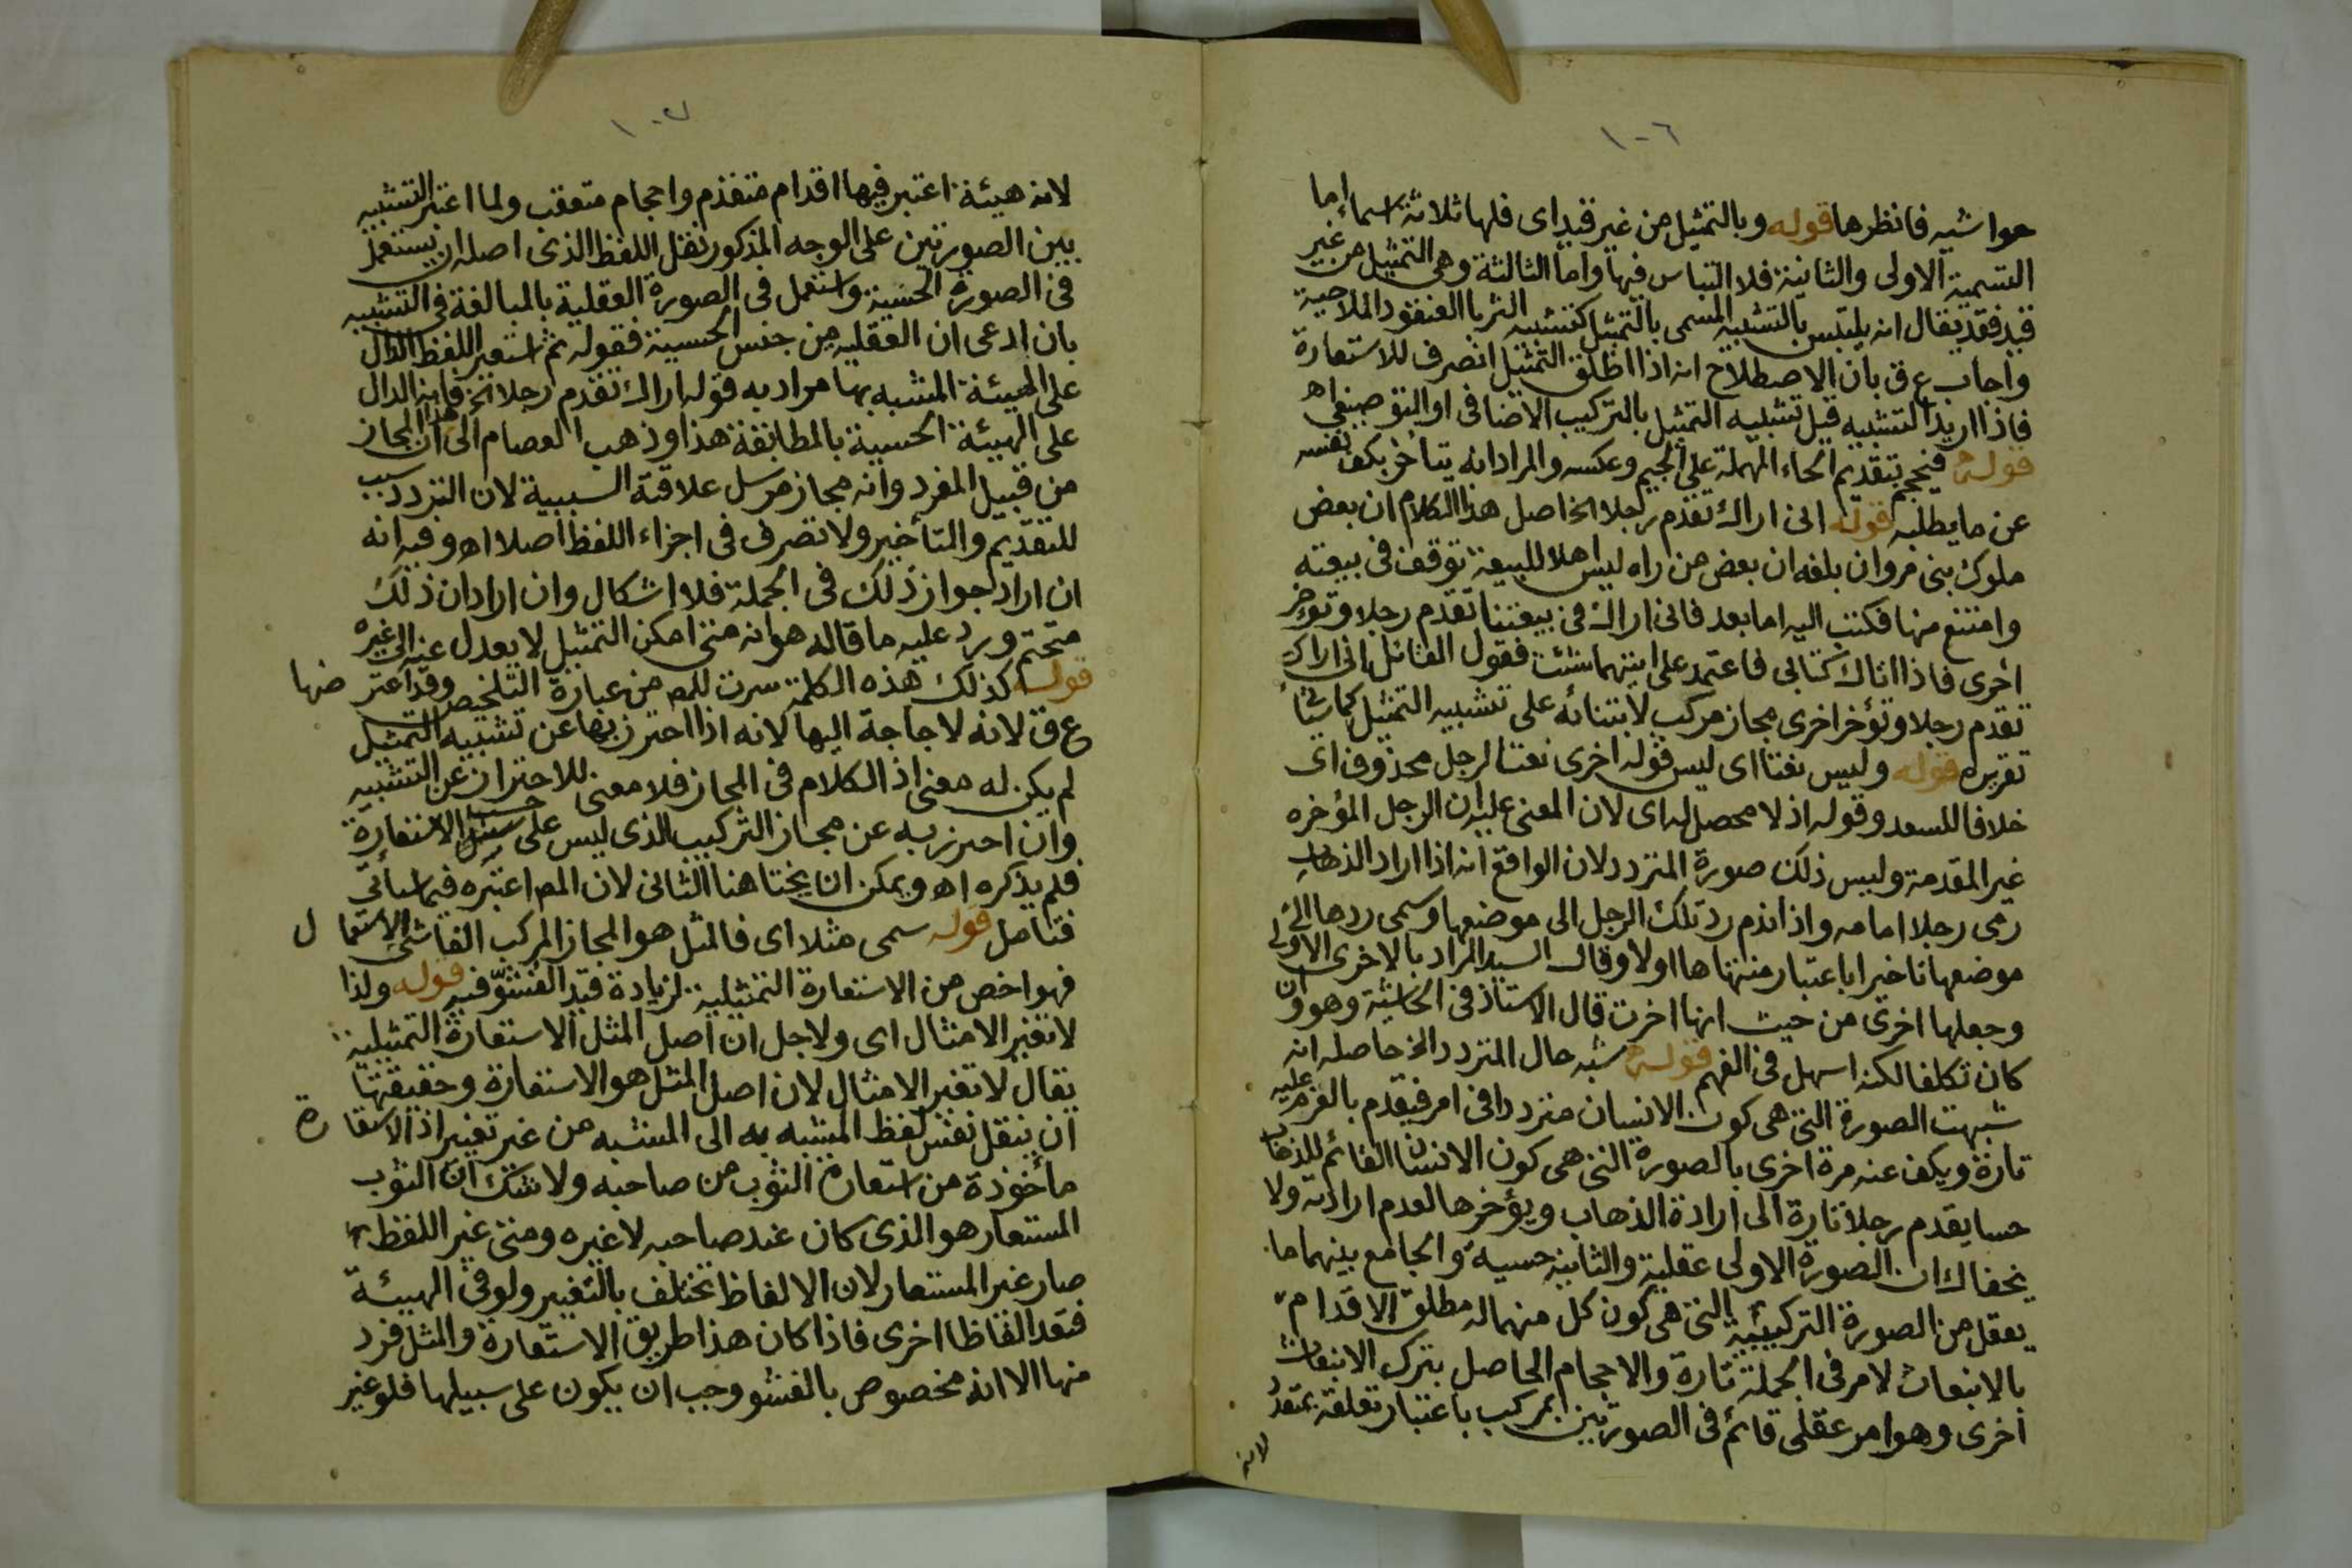 ١٠٦
حواشيه فانظرها قوله وبالتمثيل من غير قيد اى فلها ثلاثة اسماء اما
التسمية الاولى والثانية فلا التباس فيها واما الثالثة وهى التمثيل من غير
قيد فقد يقال انه يلتبس بالتشبيه المسمى بالتمثيل كتشبيه الثريا بالعنقود الملاحية
واجاب ع ق بان الاصطلاح انه اذا اطلق التمثيل انصرف للاستعارة
فاذا اريد التشبيه قيل تشبيه التمثيل بالتركيب الاضافى او التوصيفى اه
قوله فيحجم بتقديم الحاء المهملة على الجيم وعكسه والمراد انه يتأخر بكف نفسه
عن ما يطلبه قوله انى اراك تقدم رجلا الخ اصل هذا الكلام ان بعض
ملوك بنى مروان بلغه ان بعض من راه ليس اهلا للبيعة توقف فى بيعته
وامتنع منها فكتب اليه اما بعد فانى اراك فى بيعتنا تقدم رجلا وتؤخر
اخرى فاذا اتاك كتابى فاعتمد على ايتهما شئت فقول القائل انى اراك
تقدم رجلا وتؤخر اخرى مجاز مركب لابتنائه على تشبيه التمثيل كما سيأتى
تقريره قوله وليس نعتا اى ليس قوله اخرى نعتا لرجل محذوف اى
خلافا للسعد وقوله اذ لا محصل له اى لان المعنى عليه ان الرجل المؤخره
غير المقدمة وليس ذلك صورة المتردد لان الواقع انه اذا اراد الذهاب
رمى رجلا امامه واذا ندم رد تلك الرجل الى موضعها وسمى ردها الى
موضعها تأخيرا باعتبار منتهاها اولا وقال السيد المراد بالاخرى الاولى
وجعلها اخرى من حيث انها اخرت قال الاستاذ فى الحاشية وهو وان
كان تكلفا لكنه اسهل فى الفهم قوله شبه حال المتردد الخ حاصله انه
شبهت الصورة التى هى كون الانسان مترددا فى امر فيقدم بالعزم عليه
تارة ويكف عنه مرة اخرى بالصورة التى هى كون الانسان القائم للذهاب
حسا يقدم رجلا تارة الى ارادة الذهاب ويؤخرها لعدم ارادته ولا
يخفاك ان الصورة الاولى عقلية والثانية حسية والجامع بينهما ما
يعقل من الصورة التركيبية التى هى كون كل منهما له مطلق الاقدام
بالانبعاث لامر فى الجملة تارة والاحجام الحاصل بترك الانبعاث
اخرى وهو امر عقلى قائم فى الصورتين بمركب باعتبار تعلقه بمتعدد
لانه
١٠٧
لانه هيئة اعتبر فيها اقدام متقدم واحجام متعقب ولما اعتبر التشبيه
بين الصورتين على الوجه المذكور نقل اللفظ الذى اصله ان يستعمل
فى الصورة الحسية واستعمل فى الصورة العقلية بالمبالغة فى التشبيه
بان ادعى ان العقليه من جنس الحسية فقوله ثم استعير اللفظ الدال
على الهيئة المشبه بها مراد به قوله اراك تقدم رجلا الخ فانه الدال
على الهيئة الحسية بالمطابقة هذا وذهب العصام الى ان هذا المجاز
من قبيل المفرد وانه مجاز مرسل علاقته السببية لان التردد سبب
للتقديم والتأخير ولا تصرف فى اجزاء اللفظ اصلا اه وفيه انه
ان اراد جواز ذلك فى الجملة فلا اشكال وان اراد ان ذلك
متحتم ورد عليه ما قاله هو انه متى امكن التمثيل لا يعدل عنه الى غيره
قوله كذلك هذه الكلمة سرت للمص من عبارة التلخيص وقد اعترضها
ع ق لانه لا حاجة اليها لانه اذا احترز بها عن تشبيه التمثيل
لم يكن له معنى اذ الكلام فى المجاز فلا معنى للاحتراز عن التشبيه
وان احترز به عن مجاز التركيب الذى ليس على حسب الاستعارة
فلم يذكره اه ويمكن ان يختا هنا الثانى لان المص اعتبره فيما سيأتى
فتامل قوله سمى مثلا اى فالمثل هو المجاز المركب الفاشى الاستعمال
فهو اخص من الاستعارة التمثيلية لزيادة قيد الفشوّ فيه قوله ولذا
لا تغير الامثال اى ولاجل ان اصل المثل الاستعارة التمثيلية
يقال لا تغير الامثال لان اصل المثل هو الاستعارة وحقيقتها
ان ينقل نفس لفظ المشبه به الى المشبه من غير تغيير اذ الاستعارة
مأخوذة من استعارة الثوب من صاحبه ولا شك ان الثوب
المستعار هو الذى كان عند صاحبه لا غيره ومتى غير اللفظ
صار غير المستعار لان الالفاظ تختلف بالتغيير ولو فى الهيئة
فتعد الفاظا اخرى فاذا كان هذا طريق الاستعارة والمثل فرد
منها الا انه مخصوص بالفشو وجب ان يكون على سبيلها فلو غير